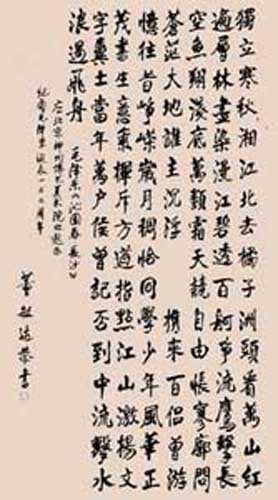 獨立寒秋湘江北去橘子洲頭看萬山紅
遍層林盡染漫江碧透百舸争流鷹擊長
空魚翔淺底萬類霜天競自由悵寥廓問
蒼茫大地誰主沉浮 携來百侣曾游
憶往昔崢嶸歲月稠恰同學少年風華正
茂書生意氣揮斥方遒指點江山激揚文
字糞土當年萬户侯曾記否到中流擊水
浪遏飛舟 毛澤東《沁園春長沙》
紀念毛澤東誕辰一百
書